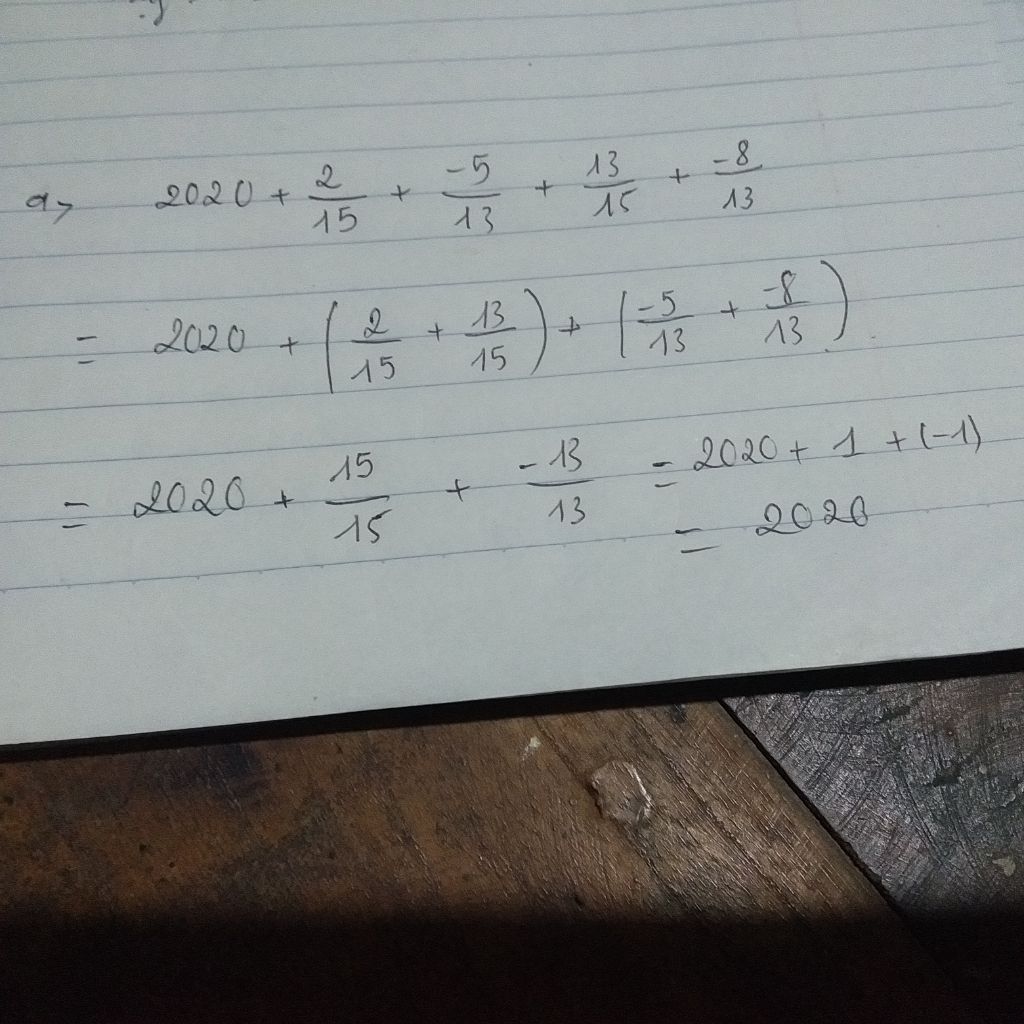 a, 2020 + 2/15 + -5/13 + 13/15 + -8/13
= 2020 + (2/15 + 13/15) + (-5/13 + -8/13)
= 2020 + 15/15 + -13/13 = 2020 + 1 + (-1)
= 2020